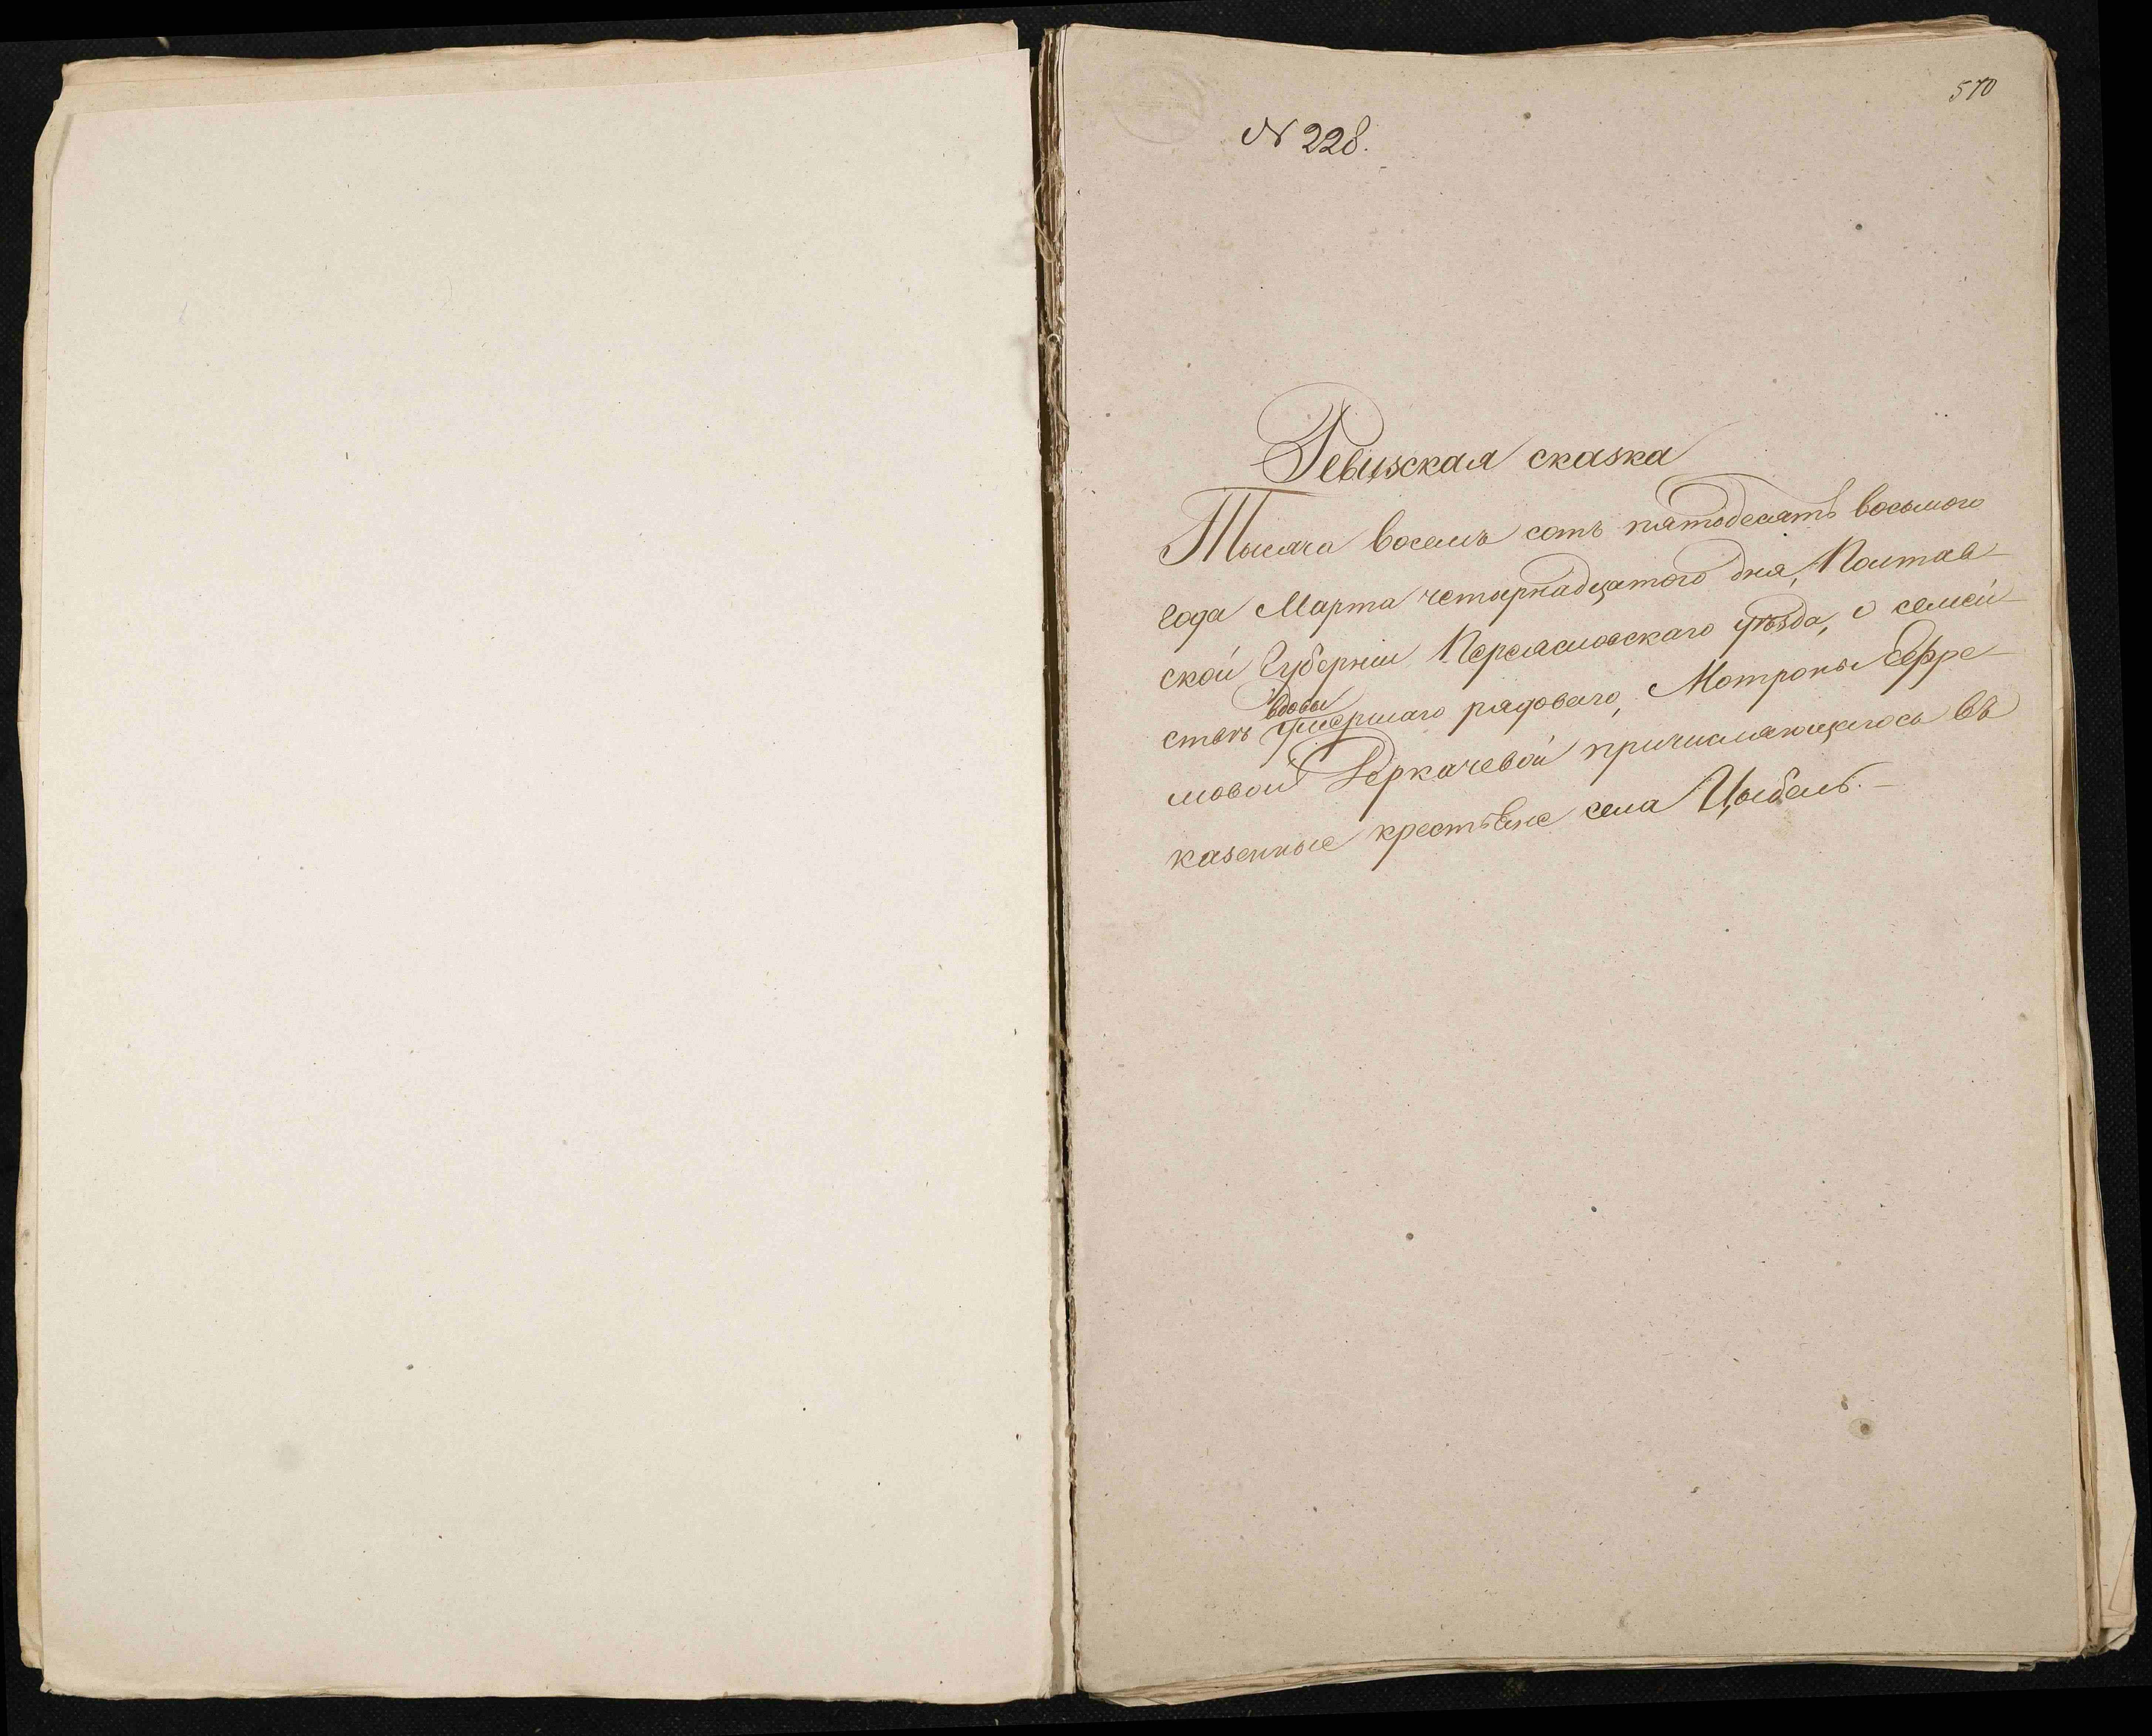 570
№ 228.
Ревизская сказка
Тысяча восемь сотъ пятьдесятъ восьмого
года Марта четырнадцатого дня, Полтав-
ской Губернии Переяславскаго уѣзда, о семей-
вдовы
ствѣ умершаго рядоваго, Мотроны Ефре-
мовой Деркачевой причисляющагося въ
казенные крестьяне села Цыбель.-